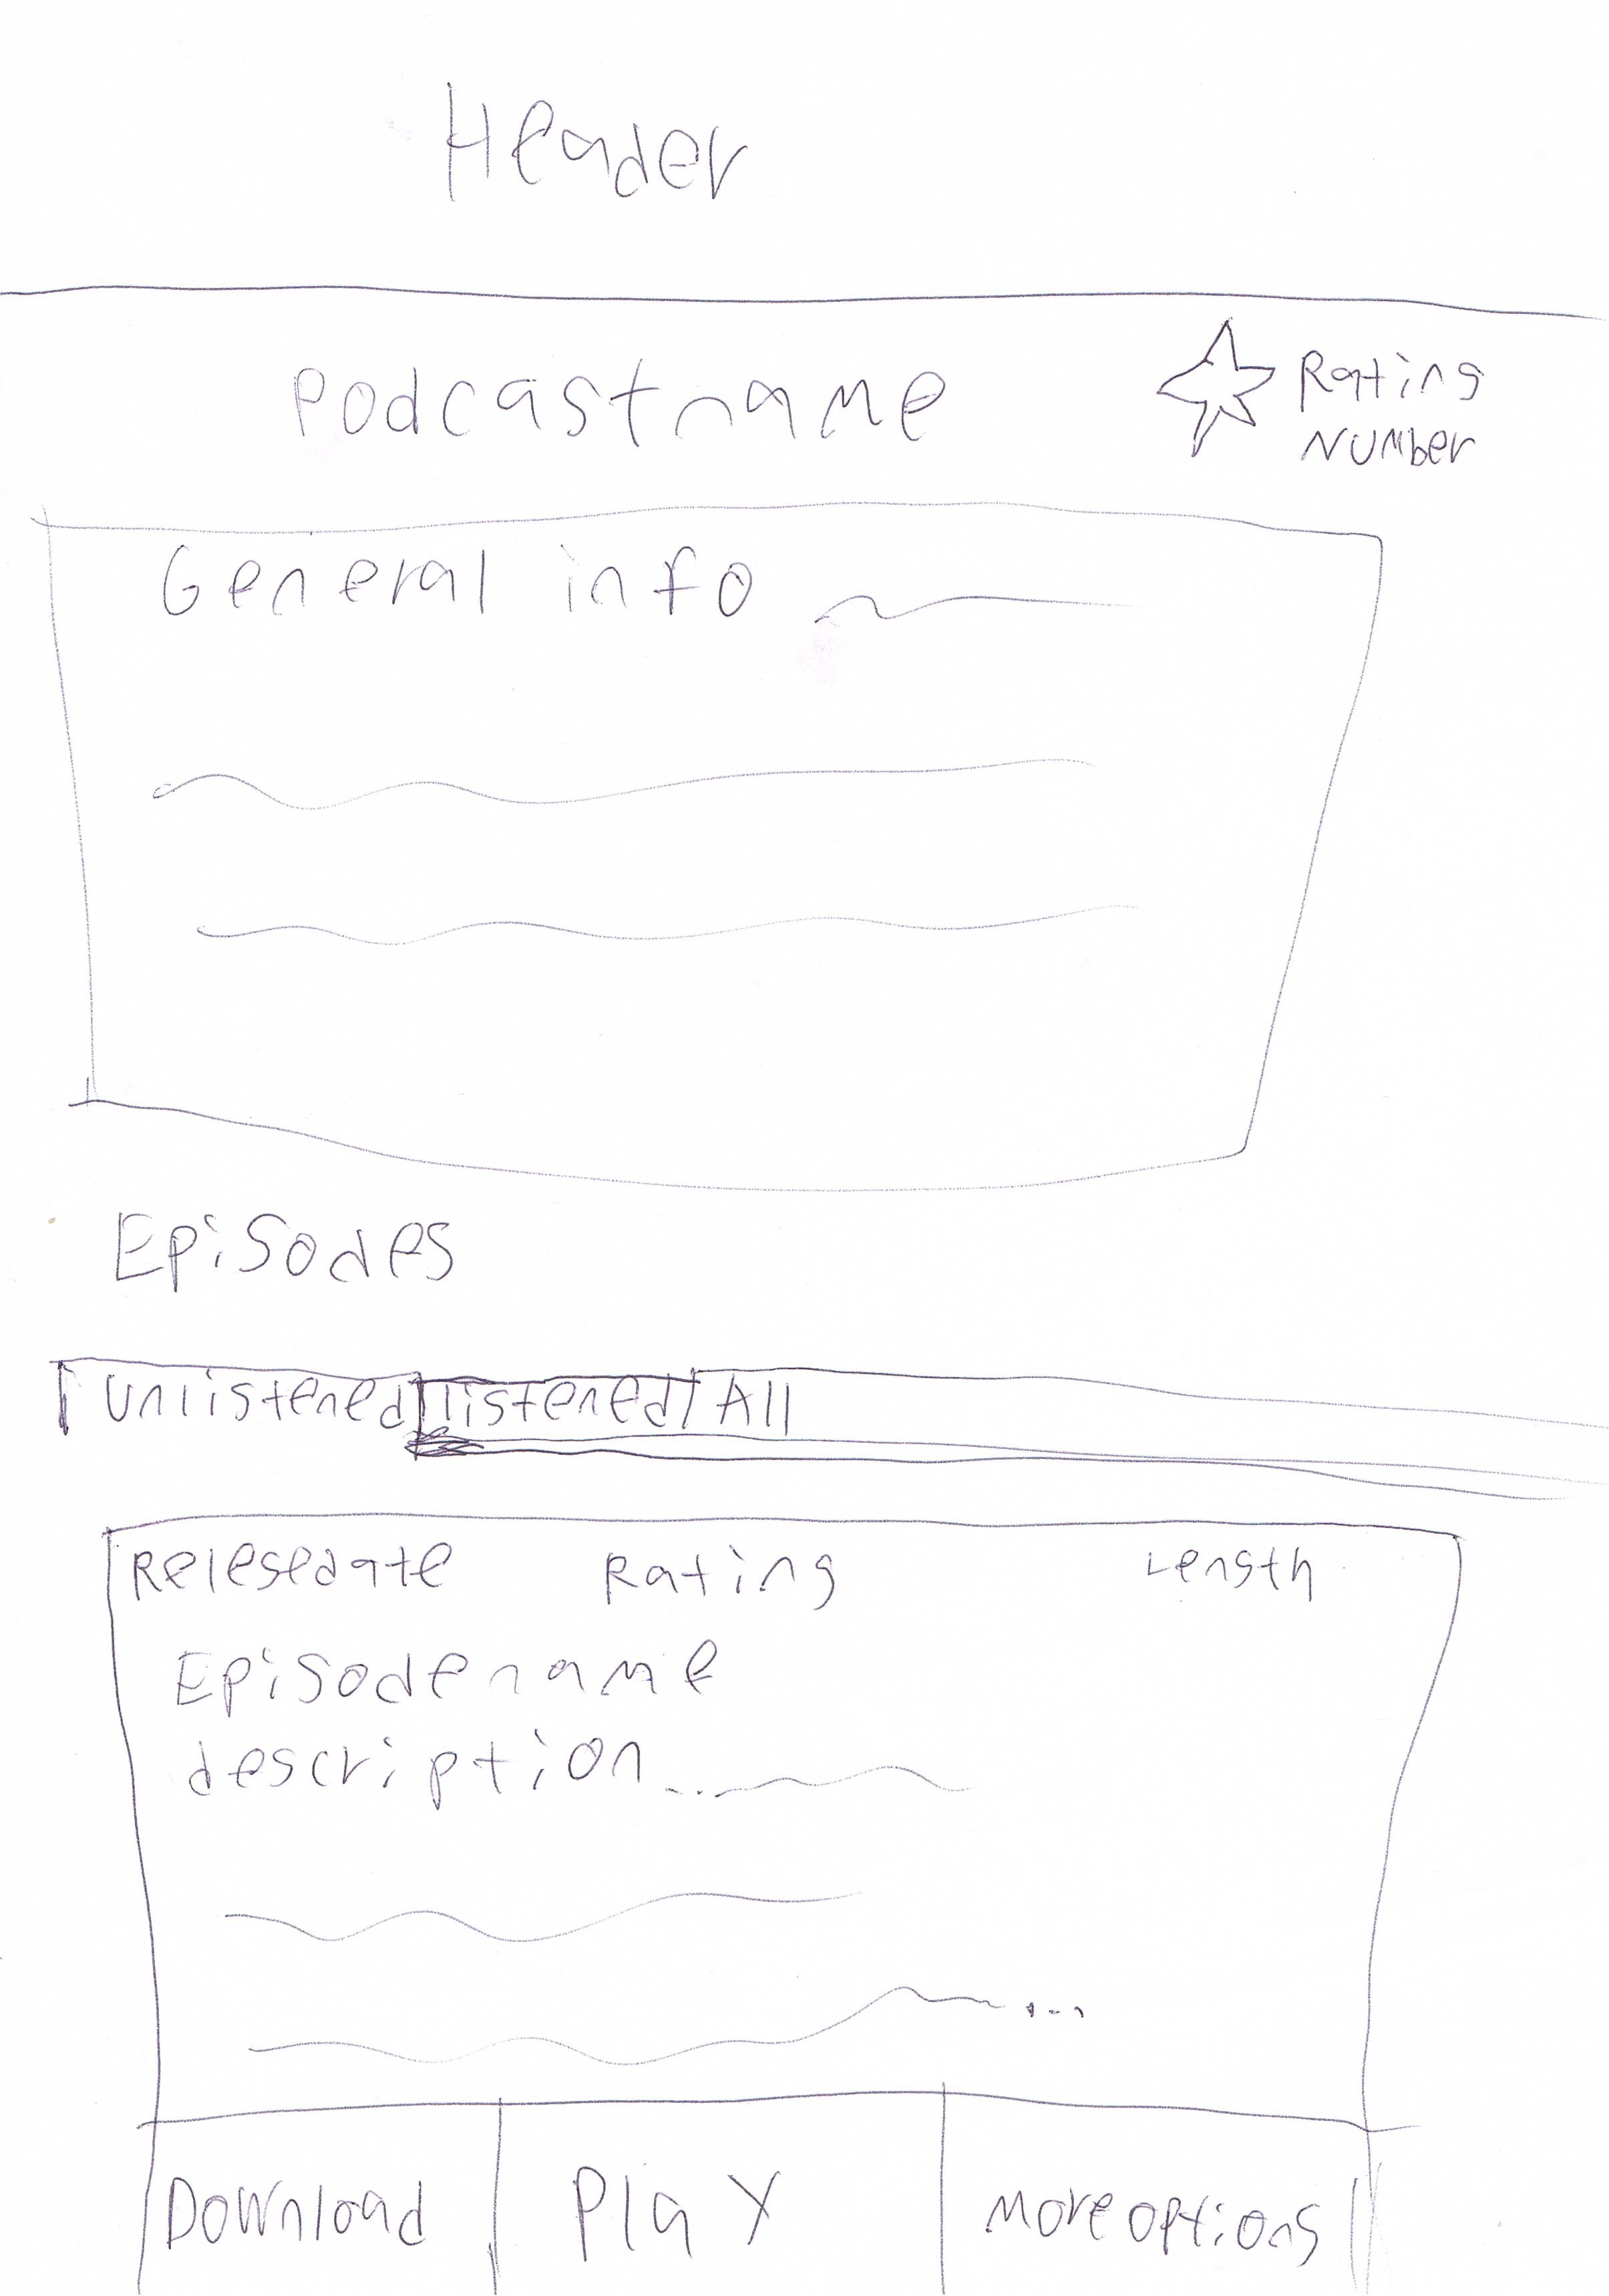 Header
Podcastname
Rating
Number
General info
Episodes
Unlistened listened All
Relesedate Rating Length
Episodename
description...
...
Download Play More options